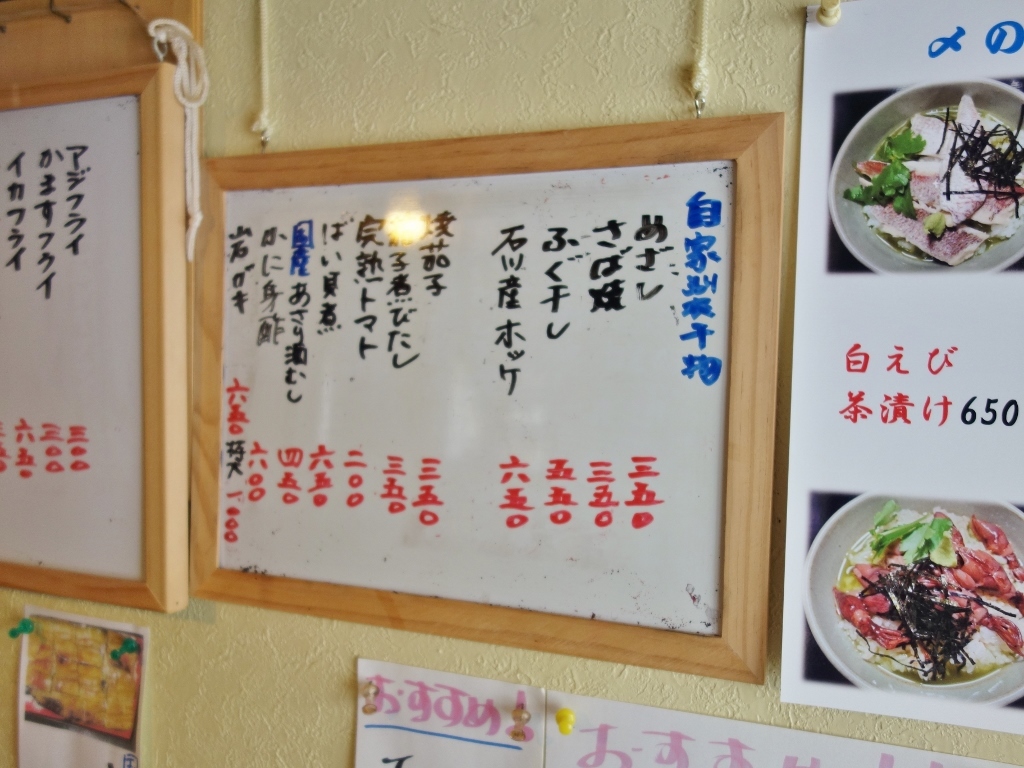 自家製干物
めざし 三五〇
さば焼 三五〇
ふぐ干し 五五〇
石川産ホッケ 六五〇
焼茄子 三五〇
茄子煮びたし 三五〇
完熟トマト 二〇〇
ばい貝煮 六五〇
国産あさり酒むし 四五〇
かに身酢 六〇〇
岩ガキ 六五〇 特大 一〇〇〇
アジフライ 三〇〇
かますフライ 三〇〇
イカフライ 六五〇
〆の
白えび
茶漬け650
おすすめ!
おすすめ